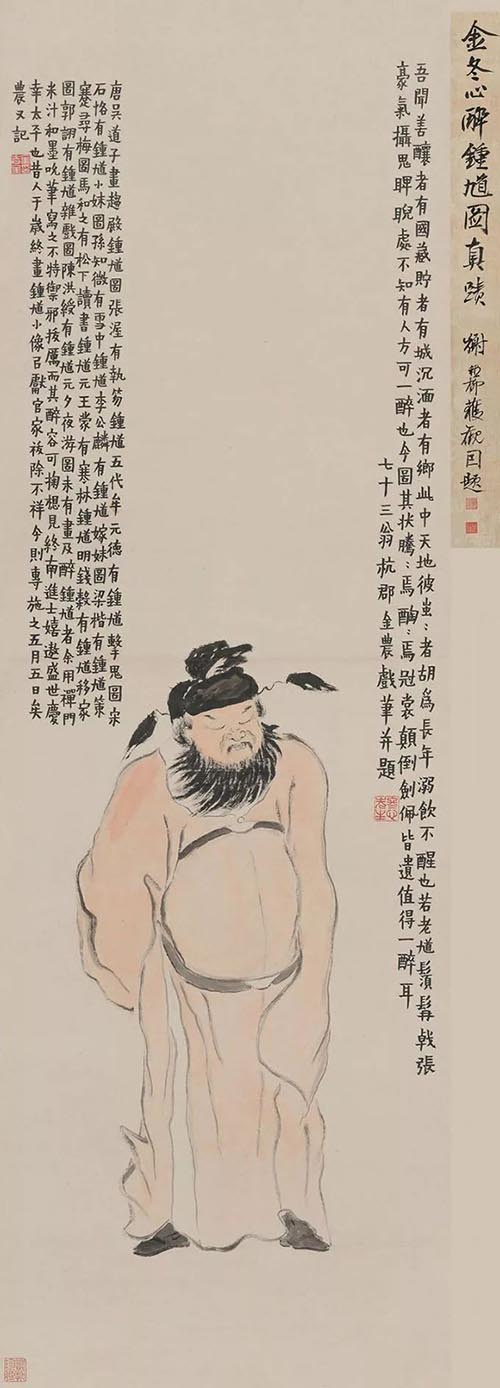 金冬心醉鍾馗圖真蹟
獲觀因題
吾聞善釀者有國藏貯者有城沉湎者有鄉此中天地彼蚩：者胡為長年溺飲不醒也若老馗鬚髯戟張
豪氣攝鬼睥睨處不知有人方可一醉也今圖其狀騰：焉醄：焉冠裳顛倒劍佩皆遺值得一醉耳
七十三翁杭郡金農戲筆并題
唐吳道子畫趨殿鍾馗圖張渥有執笏鍾馗五代牟元德有鍾馗擊鬼圖宋
石恪有鍾馗小妹圖孫知微有雪中鍾馗李公麟有鍾馗嫁妹圖梁楷有鍾馗策
蹇尋梅圖馬和之有松下讀書鍾馗元王蒙有寒林鍾馗明錢穀有鍾馗移家
圖郭詡有鍾馗雜戲圖陳洪綬有鍾馗元夕夜游圖未有畫及醉鍾馗者余用禪門
米汁和墨吮筆寫之不特禦邪拔厲而其醉容可掬想見終南進士嬉遨盛世慶
幸太平也昔人于歲終畫鍾馗小像以獻官家祓除不祥今則專施之五月五日矣
農又記